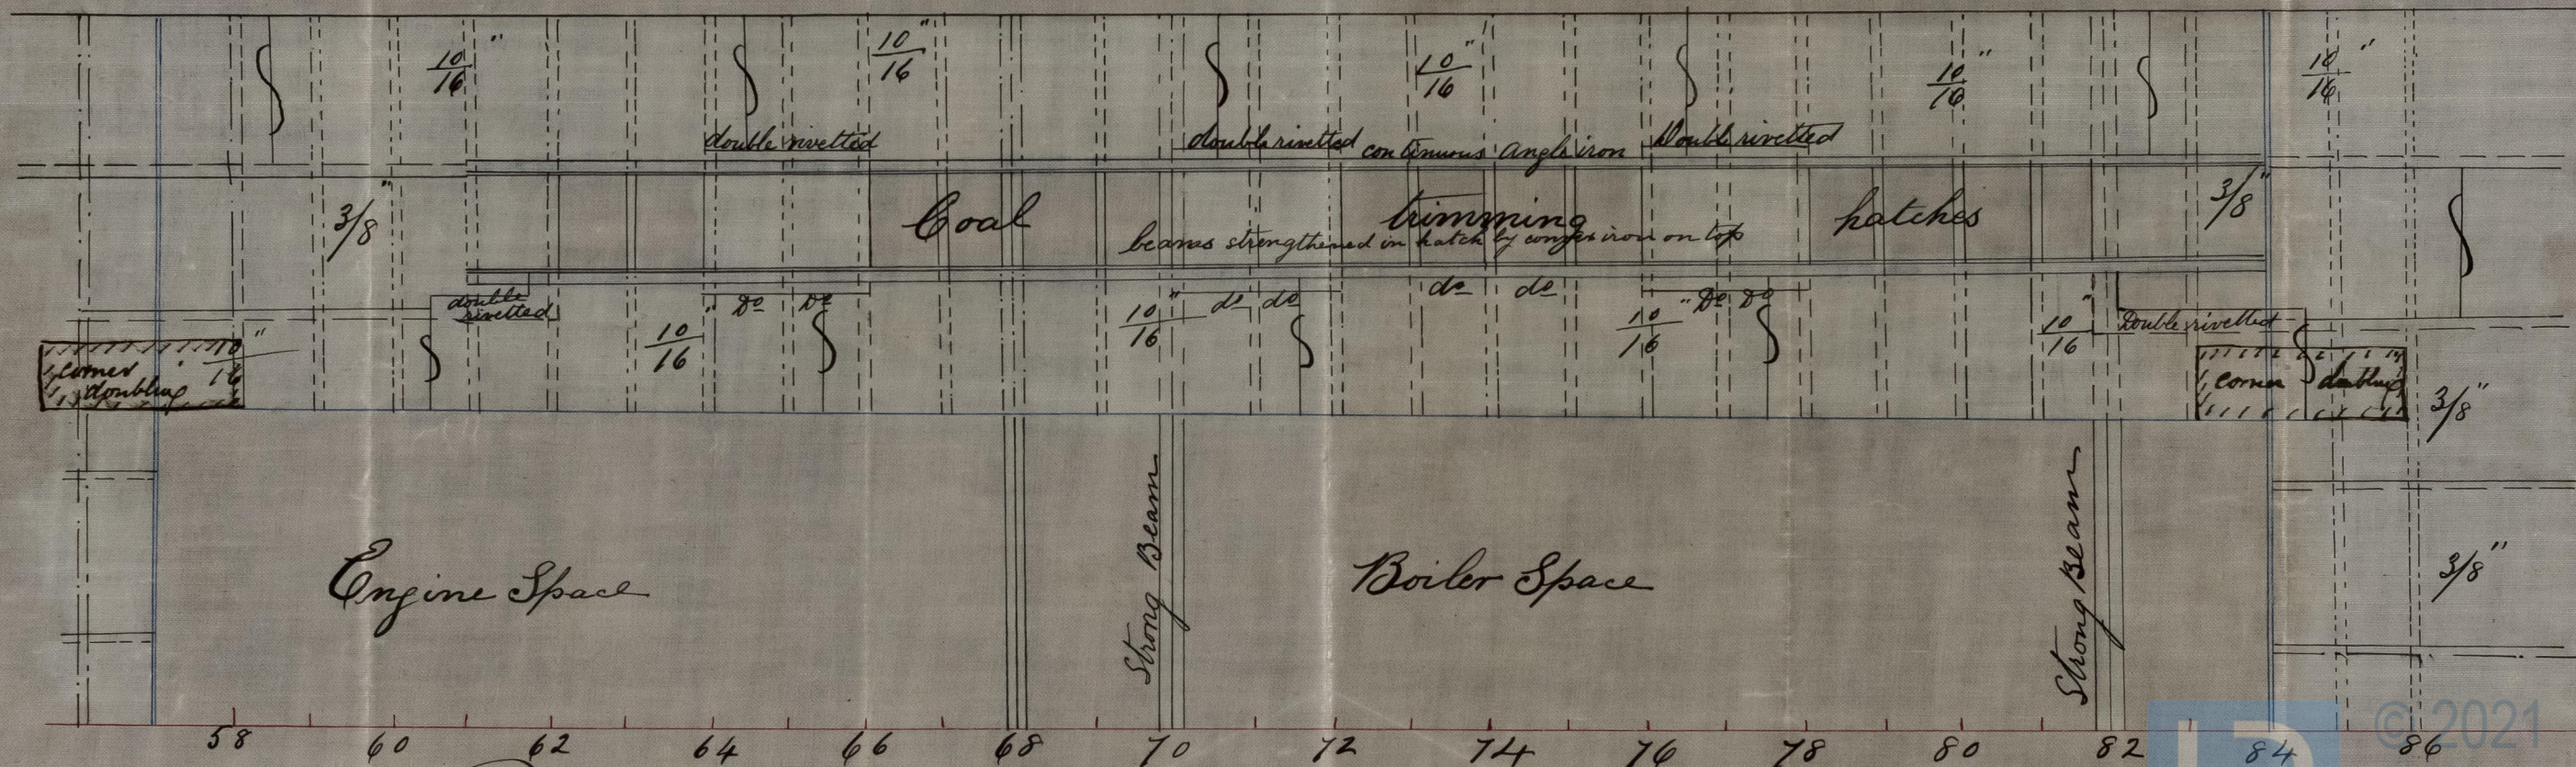 10/16" 10/16" 10/16" 10/16" 10/16"
double rivetted double rivetted continuous Angle iron Double rivetted
3/8" Coal trimming hatches 3/8"
beams strengthened in hatch by iron on top
double rivetted Do Do do do do do Do Do Double rivetted
10/16" 10/16" 10/16" 10/16" 10/16"
corner doubling
corner doubling
3/8"
Engine Space
Strong Beam
Boiler Space
Strong Beam
3/8"
58 60 62 64 66 68 70 72 74 76 78 80 82 84 86
© 2021